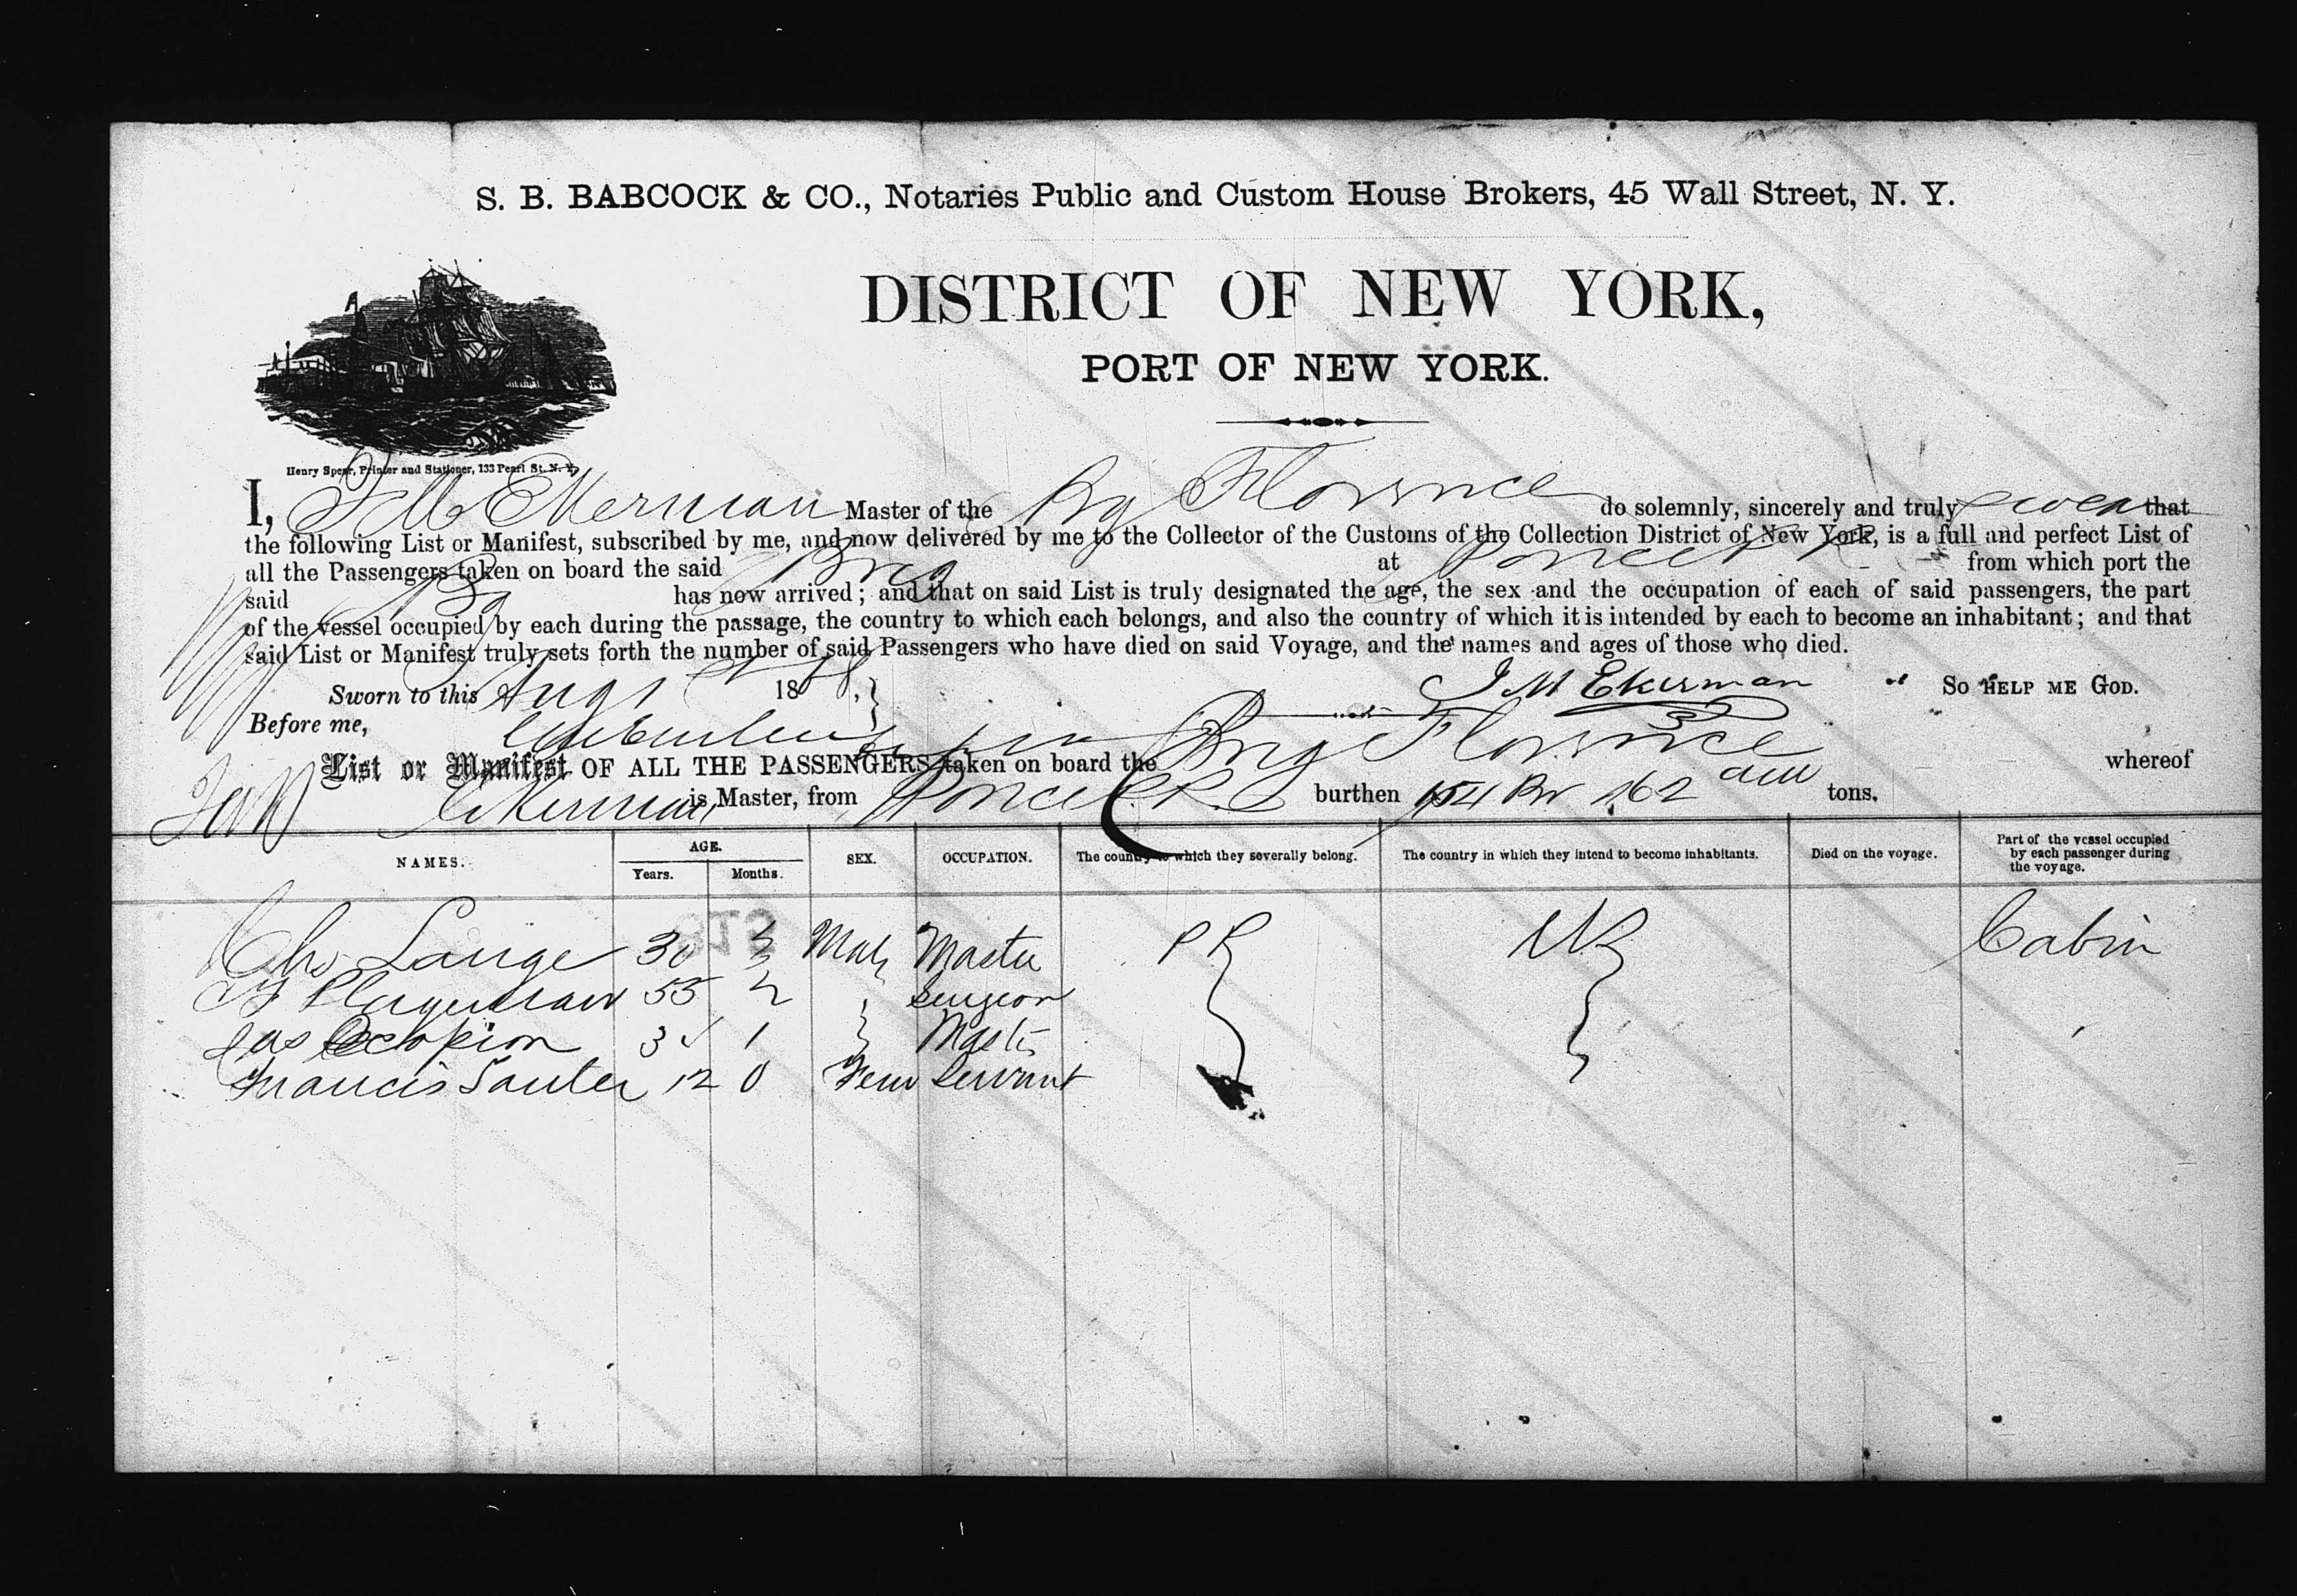 S. B. BABCOCK & CO., Notaries Public and Custom House Brokers, 45 Wall Street, N. Y.
DISTRICT OF NEW YORK,
PORT OF NEW YORK.
Henry Spear, Printer and Stationer, 133 Pearl St. N. Y.
I, J M Ekerman Master of the Bg Florence do solemnly, sincerely and truly swear that
the following List or Manifest, subscribed by me, and now delivered by me to the Collector of the Customs of the Collection District of New York, is a full and perfect List of
all the Passengers taken on board the said Brig at Ponce P R from which port the
said Bg has now arrived; and that on said List is truly designated the age, the sex and the occupation of each of said passengers, the part
of the vessel occupied by each during the passage, the country to which each belongs, and also the country of which it is intended by each to become an inhabitant; and that
said List or Manifest truly sets forth the number of said Passengers who have died on said Voyage, and the names and ages of those who died.
Sworn to this Augt 186 J M Ekerman So HELP ME GOD.
Before me,
List or Manifest OF ALL THE PASSENGERS taken on board the Brig Florence whereof
Ekerman is Master, from Ponce P.R. burthen 154 Br 162 am tons.
NAMES. AGE. Years. Months. SEX. OCCUPATION. The country to which they severally belong. The country in which they intend to become inhabitants. Died on the voyage. Part of the vessel occupied by each passenger during the voyage.
Chs Lange 30 3 Male Master P R US Cabin
55 2 Surgeon
Jas 3 1 Mast
Francis Sauter 12 0 Fem Servant